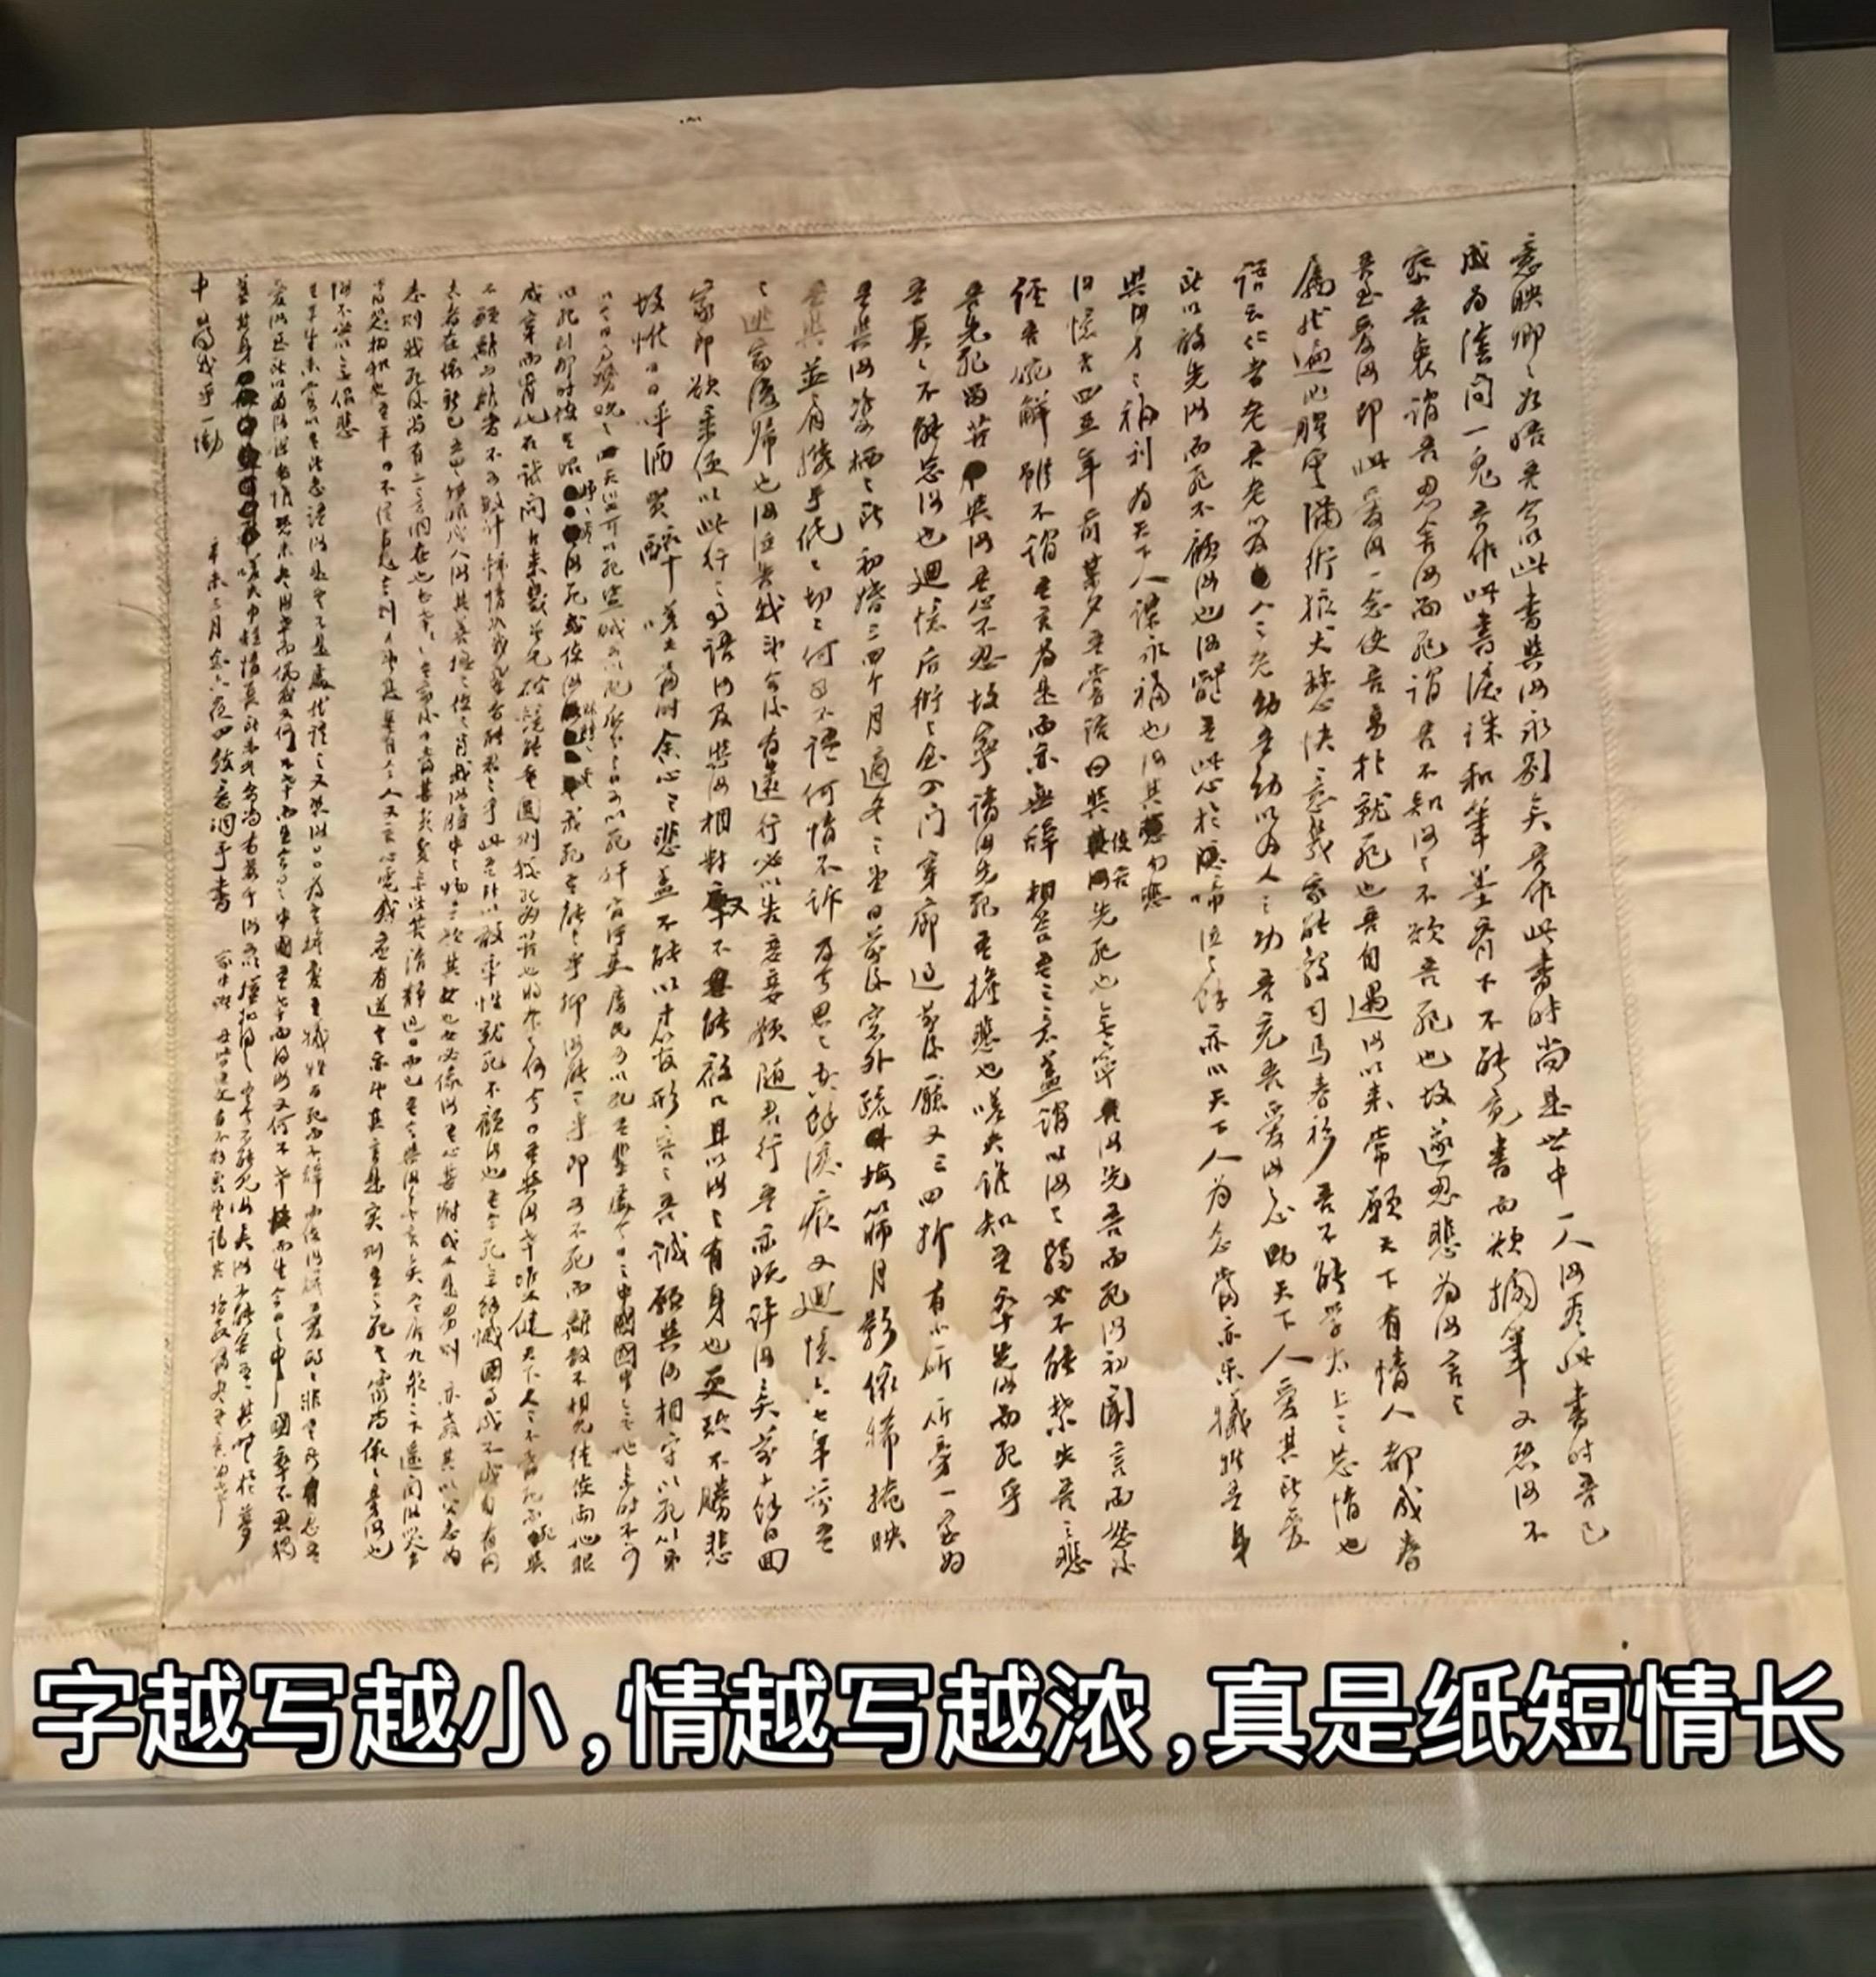 意映卿卿如晤吾今以此書與汝永別矣吾作此書時尚是世中一人汝看此書時吾已
成為陰間一鬼吾作此書淚珠和筆墨齊下不能竟書而欲擱筆又恐汝不
察吾衷謂吾忍舍汝而死謂吾不知汝之不欲吾死也故遂忍悲為汝言之
吾至愛汝即此愛汝一念使吾勇於就死也吾自遇汝以來常願天下有情人都成眷
屬然遍地腥雲滿街狼犬稱心快意幾家能彀司馬春衫吾不能學太上之忘情也
語云仁者老吾老以及人之老幼吾幼以及人之幼吾充吾愛汝之心助天下人愛其所愛
所以敢先汝而死不顧汝也汝體吾此心於啼泣之餘亦以天下人為念當亦樂犧牲吾身
與汝身之福利為天下人謀永福也汝其勿悲
汝憶否四五年前某夕吾嘗語曰與使吾先死也無寧汝先吾而死汝初聞言而怒後
經吾婉解雖不謂吾言為是而亦無辭相答吾之意蓋謂以汝之弱必不能禁失吾之悲
吾先死留苦與汝吾心不忍故寧請汝先死吾擔悲也嗟夫誰知吾卒先汝而死乎
吾真真不能忘汝也迴憶后街之屋入門穿廊過前後廳又三四折有小廳廳旁一室為
吾與汝雙栖之所初婚三四个月適冬之望日前後窗外疏梅篩月影依稀掩映
吾與並肩攜手低低切切何事不語何情不訴及今思之空餘淚痕又迴憶六七年前吾
之逃家復歸也汝泣告我望今後有遠行必以告妾妾願隨君行吾亦既許汝矣前十餘日回
家即欲乘便以此行之事語汝及與汝相對又不能啟口且以汝之有身也更恐不勝悲
故惟日日呼酒買醉嗟夫當時余心之悲蓋不能以寸管形容之吾誠願與汝相守以死第
以今日事勢觀之天災可以死盜賊可以死瓜分之日可以死奸官汙吏虐民可以死吾輩處今日之中國國中無地無時不可
以死到那時使吾眼睜睜看汝死或使汝眼睜睜看我死吾能之乎抑汝能之乎即可不死而離散不相見徒使兩地眼
成穿而骨化石試問古來幾曾見破鏡能重圓則較死為苦也將奈之何今日吾與汝幸雙健天下人之不當死而死與
不願離而離者不可數計鍾情如我輩者能忍之乎此吾所以敢率性就死不顧汝也吾今死無餘憾國事成不成自有同
志者在依新已五歲轉眼成人汝其善撫之使之肖我汝腹中之物吾疑其女也女必像汝吾心甚慰或又是男則亦教其以父志為
志則我死後尚有二意洞在也幸甚幸甚吾家日後當甚貧貧無所苦清靜過日而已吾今與汝無言矣吾居九泉之下遙聞汝哭聲
當哭相和也吾平日不信有鬼今則又望其真有今人又言心電感應有道吾亦望其言是實則吾之死吾靈尚依依旁汝也
汝不必以無侶悲
吾平生未嘗以吾所志語汝是吾不是處然語之又恐汝日日為吾擔憂吾犧牲百死而不辭而使汝擔憂的的非吾所思吾
愛汝至所以為汝謀者惟恐未盡汝幸而偶我又何不幸而生今日之中國吾幸而得汝又何不幸而生今日之中國卒不忍獨
善其身嗟夫巾短情長所未盡者尚有萬千汝可摹擬得之吾今不能見汝矣汝不能舍吾其時時於夢
中尋我乎一慟 辛未三月念六夜四鼓意洞手書
家中諸母皆通文有不解處望請其指教當盡吾意為幸
字越写越小,情越写越浓,真是纸短情长